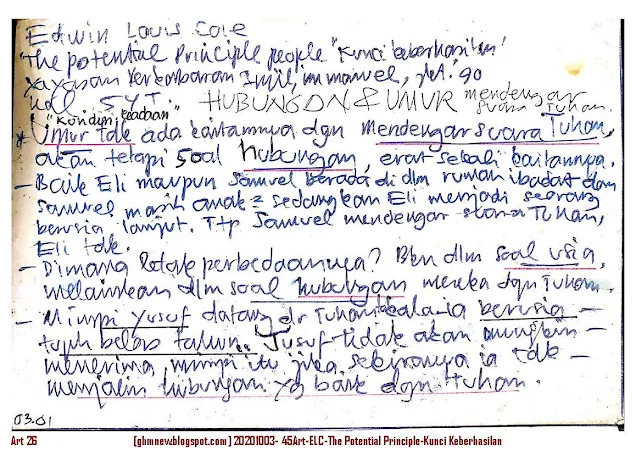 Edwin Louis Cole
The potential Principle people "Kunci keberhasilan"
Yayasan Perkabaran Injil, immanuel, jkt. '90
Hal 5YT. HUBUNGAN & UMUR mendengar suara Tuhan.
"Kondisi keadaan
* Umur tdk ada kaitannya dgn mendengar suara Tuhan,
akan tetapi soal hubungan, erat sekali kaitannya.
- Baik Eli maupun Samuel berada di dlm rumah ibadat dan
Samuel masih anak² sedangkan Eli menjadi seorang
berusia lanjut. Ttp Samuel mendengar suara Tuhan,
Eli tdk.
- Dimana letak perbedaannya? Bkn dlm soal usia,
melainkan dlm soal hubungan mereka dgn Tuhan
- Mimpi Yusuf datang dr Tuhan ia berusia -
tujuh belas tahun. Yusuf tidak akan mungkin -
menerima mimpi itu jika sekiranya ia tdk -
menjalin hubungan yg baik dgn Tuhan.
03.01
Art 26 [ghmnew.blogspot.com] 20201003- 45Art-ELC-The Potential Principle-Kunci Keberhasilan